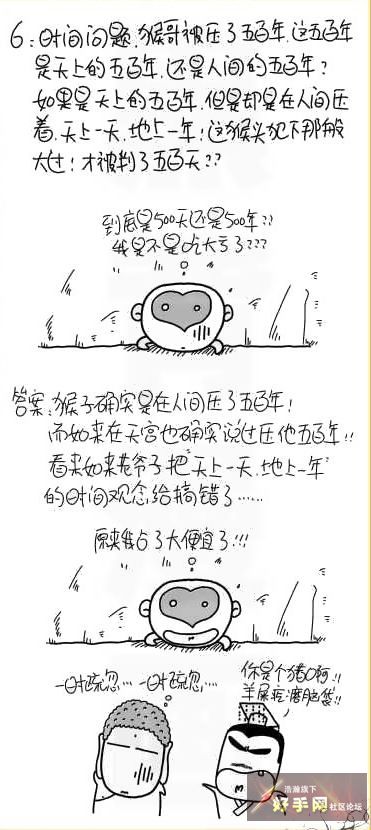 6:时间问题.猴哥被压了五百年.这五百年
是天上的五百年.还是人间的五百年?
如果是天上的五百年.但是却是在人间压
着.天上一天.地上一年!这猴头犯下那般
大过!才被判了五百天??
到底是500天还是500年??
我是不是吃大亏了???
答案:猴子确实是在人间压了五百年!
而如来在天宫也确实说过压他五百年!!
看来如来老爷子把"天上一天.地上一年"
的时间观念给搞错了……
原来我占了大便宜了!!!
一时疏忽… 一时疏忽…
你是个猪啊!!
羊屎疙瘩脑袋!!
浩瀚旗下
好手网社区论坛